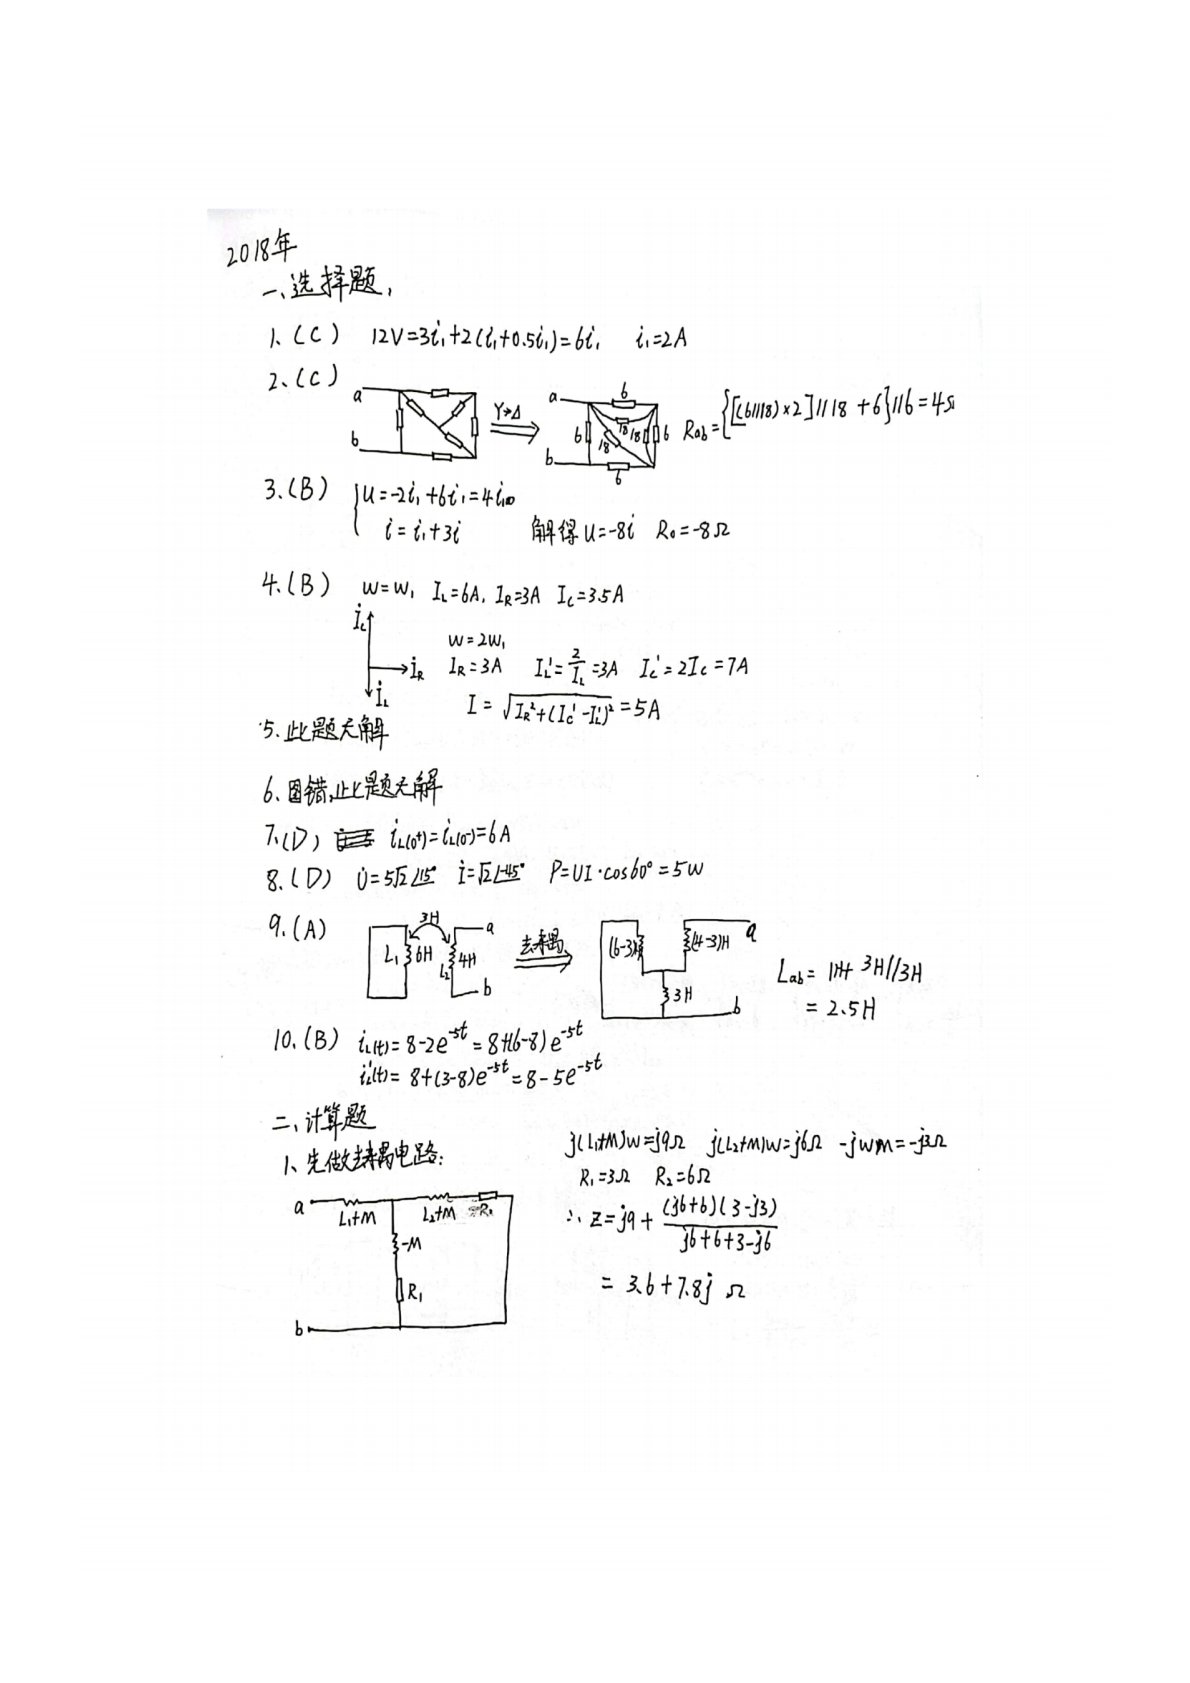 2018年
一、选择题,
1、(C) 12V=3i₁+2(i₁+0.5i₁)=6i₁ i₁=2A
2、(C)
a b Y→Δ a b 6 6 18 18 18 6 6 Rab={[(6//18)×2]//18+6}//6=4Ω
3.(B) U=-2i₁+6i₁=4i₁
i=i₁+3i 解得U=-8i R₀=-8Ω
4.(B) w=w₁ I_L=6A, I_R=3A I_C=3.5A
İ_C İ_R İ_L
w=2w₁
I_R=3A I_L'=2/I_L=3A I_C'=2I_C=7A
I=√(I_R²+(I_C'-I_L')²)=5A
5.此题无解
6、图错,此题无解
7、(D) i_L(0+)=i_L(0-)=6A
8.(D) U̇=5√2∠15° İ=√2∠-45° P=UI·cos60°=5W
9.(A) 3H L₁ 6H L₂ 4H a b 去耦 (6-3)H (4-3)H 3H a b
Lab=1H+3H//3H
=2.5H
10.(B) i_L(t)=8-2e^-5t=8+(6-8)e^-5t
i_L'(t)=8+(3-8)e^-5t=8-5e^-5t
二、计算题
1、先做去耦电路:
a L₁+M L₂+M R₂ -M R₁ b
j(L₁+M)w=j9Ω j(L₂+M)w=j6Ω -jwM=-j3Ω
R₁=3Ω R₂=6Ω
∴Z=j9+(j6+6)(3-j3)/(j6+6+3-j6)
=3.6+7.8j Ω